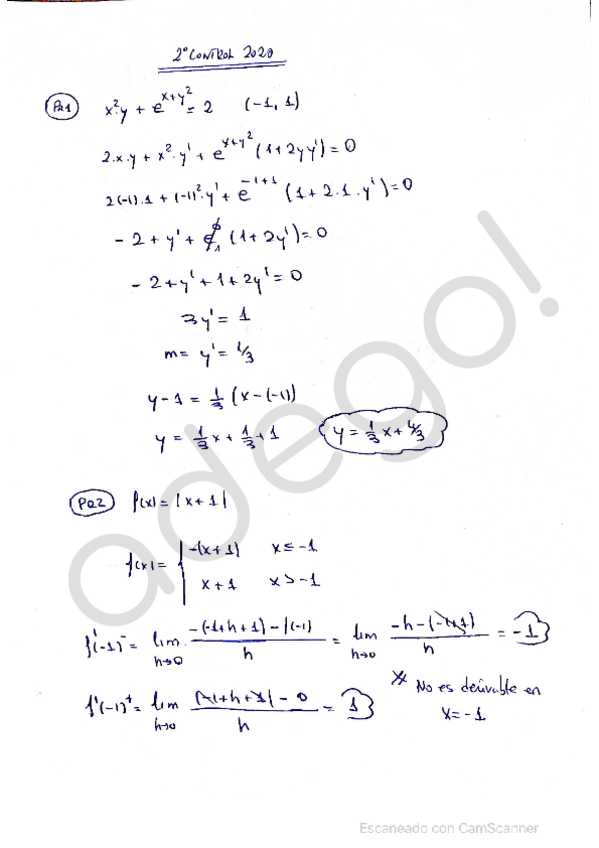 2º CONTROL 2020
Pa1 x²y + e^(x+y²) = 2 (-1, 1)
2·x·y + x²·y' + e^(x+y²) (1+2yy') = 0
2(-1)·1 + (-1)²·y' + e^(-1+1) (1+2·1·y') = 0
-2 + y' + e^0 1 (1+2y') = 0
-2 + y' + 1 + 2y' = 0
3y' = 1
m = y' = 1/3
y-1 = 1/3 (x-(-1))
y = 1/3 x + 1/3 + 1 y = 1/3 x + 4/3
Pa2 f(x) = |x+1|
f(x) = { -(x+1) x ≤ -1
x+1 x > -1
f'(-1)⁻ = lim h→0 (-(-1+h+1) - f(-1))/h = lim h→0 (-h-(-1+1))/h = -1
f'(-1)⁺ = lim h→0 ((-1+h+1) - 0)/h = 1
* No es derivable en
x = -1
adego!
Escaneado con CamScanner